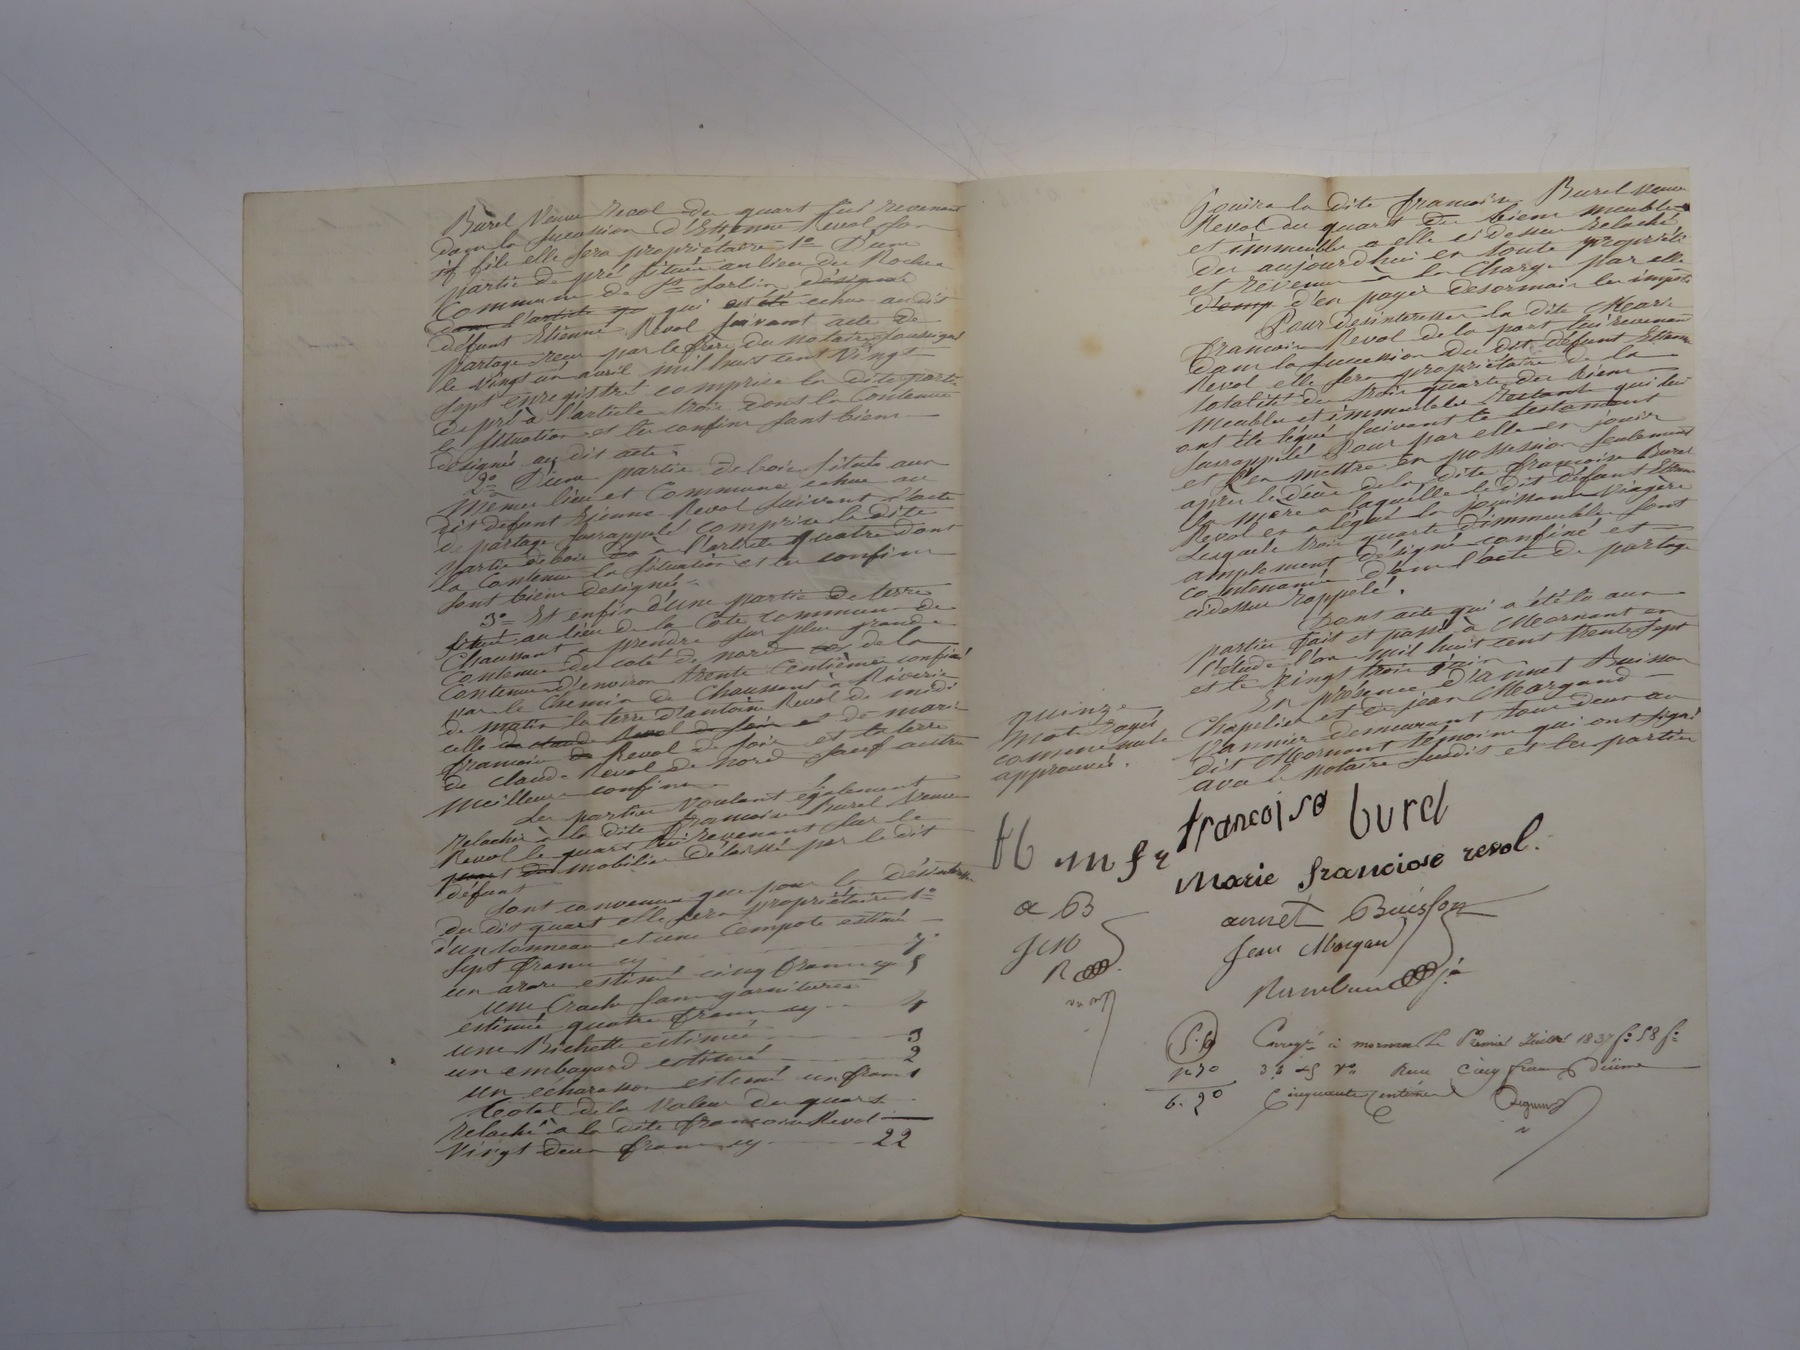 Burel Veuve Revol du quart lui revenant
dans la succession d'Etienne Revol son
fils elle sera propriétaire 1o D'une
partie de pré située au lieu du Rocher
Commune de St Sorlin désigné
dans l'article qui est été echue au dit
défunt Etienne Revol suivant acte de
partage reçu par le frère du notaire soussigné
le vingt un avril mil huit cent vingt
sept enregistré comprise la dite partie
de pré à l'article trois dont la Contenue
la situation et les confins sont bien
désignés au dit acte.
2o D'une partie de bois située aux
memes lieu et Commune echue au
dit defunt Etienne Revol suivant l'acte
de partage susrappelé comprise la dite
partie de bois à l'article quatre dont
la Contenue la situation et les confins
sont bien designés.
3o Et enfin d'une partie de terre
située au lieu de la Côte commune de
Chaussant à prendre sur plus grande
contenue du coté de nord de la
contenue d'environ trente centièmes confiné
par le chemin de Chaussant à Riverie
de matin la terre d'antoine Revol de midi
celle de claude Revol de soir et de marie
françoise Revol de soir et la terre
de claude Revol de nord sauf autres
meilleurs confins.
Les parties voulant également
Relacher à la dite françoise Burel Veuve
Revol le quart lui revenant sur le
mobilier délaissé par le dit
défunt
Sont convenus que pour la désintéresser
du dit quart elle sera propriétaire 1o
d'un tonneau et une Compote estimé
sept francs cy 7
un araire estimé cinq francs cy 5
une Crache sans garnitures
estimée quatre francs cy 4
une Bichette estimée 3
un embayard estimé 2
un écharasson estimé un franc 1
Total de la valeur du quart
relaché à la dite françoise Revol
Vingt deux francs cy 22
Jouira la dite françoise Burel veuve
Revol du quart des biens meubles
et immeubles a elle cidessus relaché
des aujourdhui en toute propriété
et revenus à la charge par elle
d'en payer desormais les impots
Pour desintéresser la dite Marie
françoise Revol de la part lui revenant
dans la succession du dit défunt Etienne
Revol elle sera propriétaire de la
totalité des trois quarts des biens
meubles et immeubles restant qui lui
ont été légué suivant le testament
susrappelé Pour par elle en jouir
et s'en mettre en possession seulement
après le décès de la dite françoise Burel
sa mère a laquelle le dit défunt Etienne
Revol en a légué la jouissance viagère
Lesquels trois quarts d'immeubles sont
amplement désigné confiné et
contenancé dans l'acte de partage
cidessus rappelé.
Dont acte qui a été lu aux
parties fait et passé à Mornant en
l'étude l'an mil huit cent trente sept
et le vingt trois juin
En présence d'annet Buisson
Chapelier et de jean Margand
Vannier demeurant tous deux au
dit Mornant temoins qui ont signé
avec le notaire susdit et les parties
quinze
mots rayés
comme nuls
approuvés.
françoise burel
marie franciose revol.
annet Buisson
Jean Morgand
fb m f r
a B
J m
R
5.50
6.
Enregé à mornant le Premier Juillet 1837 fo 58
Reçu Cinq francs Dixième
Cinquante Centimes